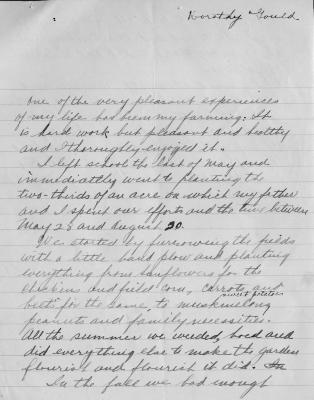 Dorothy Gould
One of the very pleasant experiences
of my life has been my farming. It
is hard work but pleasant and healthy
and I thoroughly enjoyed it.
I left school the last of May and
immediately went to planting the
two-thirds of an acre on which my father
and I spent our efforts and the time between
May 28 and August 30.
We started by furrowing the fields
with a little hand plow and planting
everything from sunflowers for the
chickens and field corn, carrots and
beets for the same, to muskmelons,
sweet potatoes
peanuts and family necessities.
All the summer we weeded, hoed and
did everything else to make the garden
flourish and flourish it did. In
In the fall we had enough